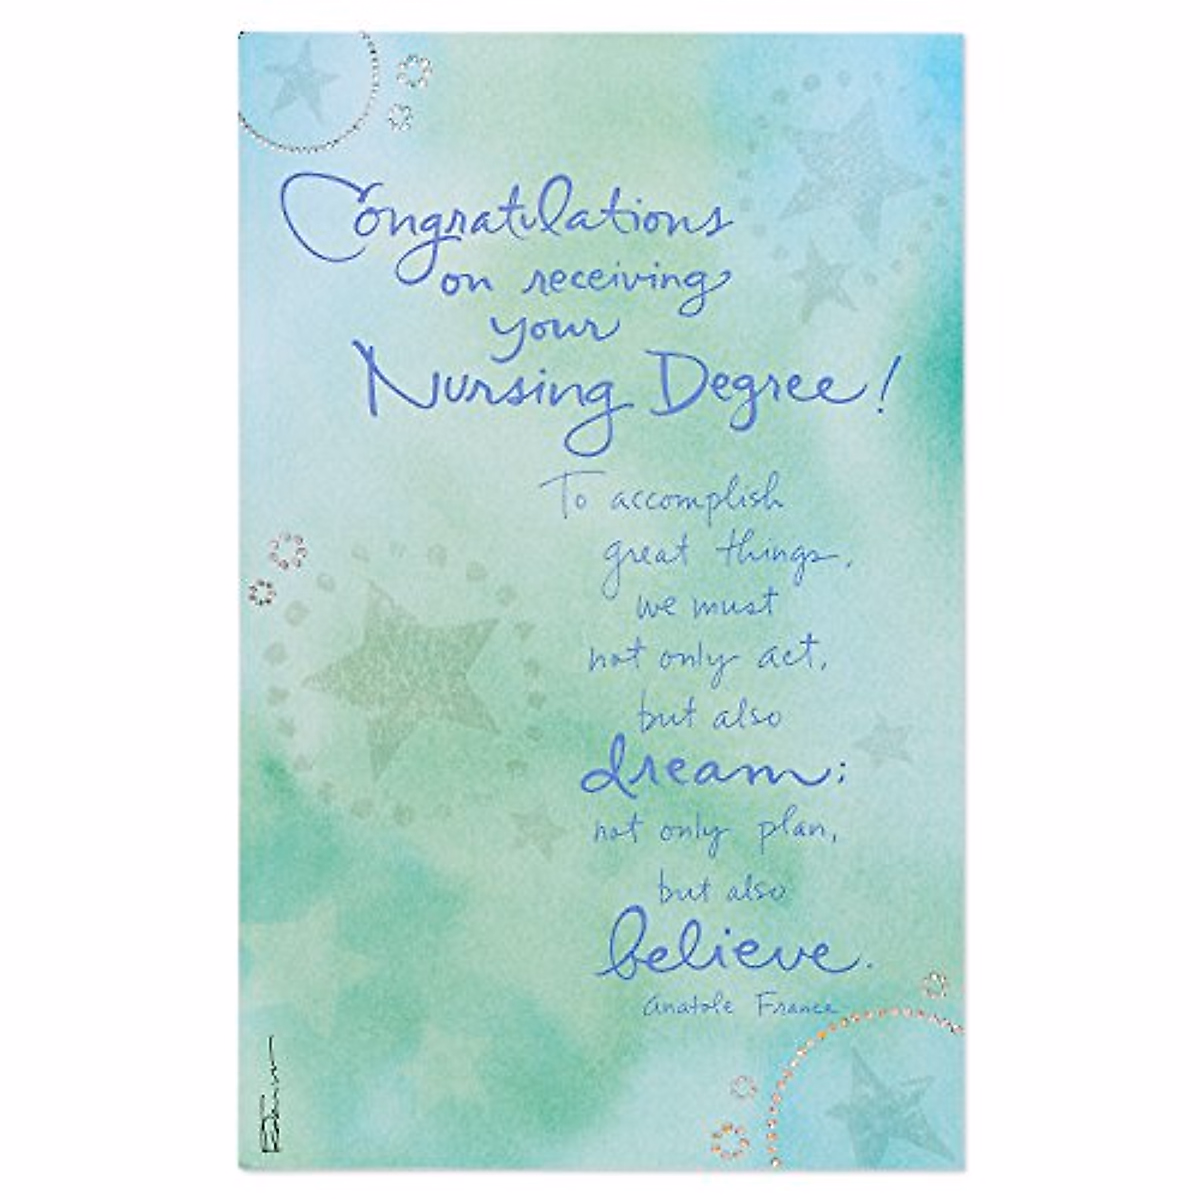 Congratulations
on receiving
your
Nursing Degree!
To accomplish
great things,
we must
not only act,
but also
dream;
not only plan,
but also
believe.
Anatole France